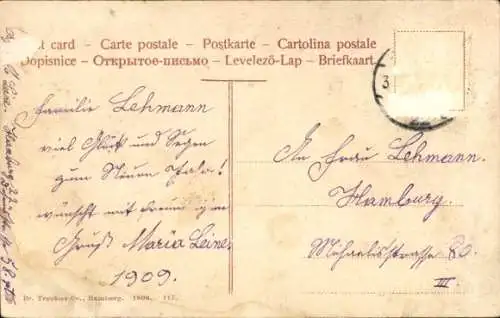 Post card – Carte postale – Postkarte – Cartolina postale
Dopisnice – Открытое письмо – Levelező-Lap – Briefkaart
3
Familie Lehmann
viel Glück und Segen
zum Neuen Jahr!
wünscht mit
Gruß Maria Leine
1909.
An Frau Lehmann.
Hamburg.
Michaelisstrasse 80
III
Dr. Trenkler Co., 1908. 117.
Hamburg 22